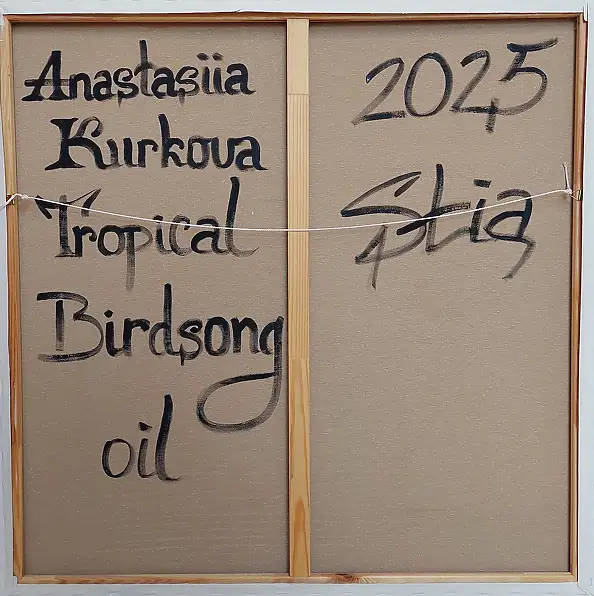 Anastasiia
Kurkova
Tropical
Birdsong
oil
2025
Stia